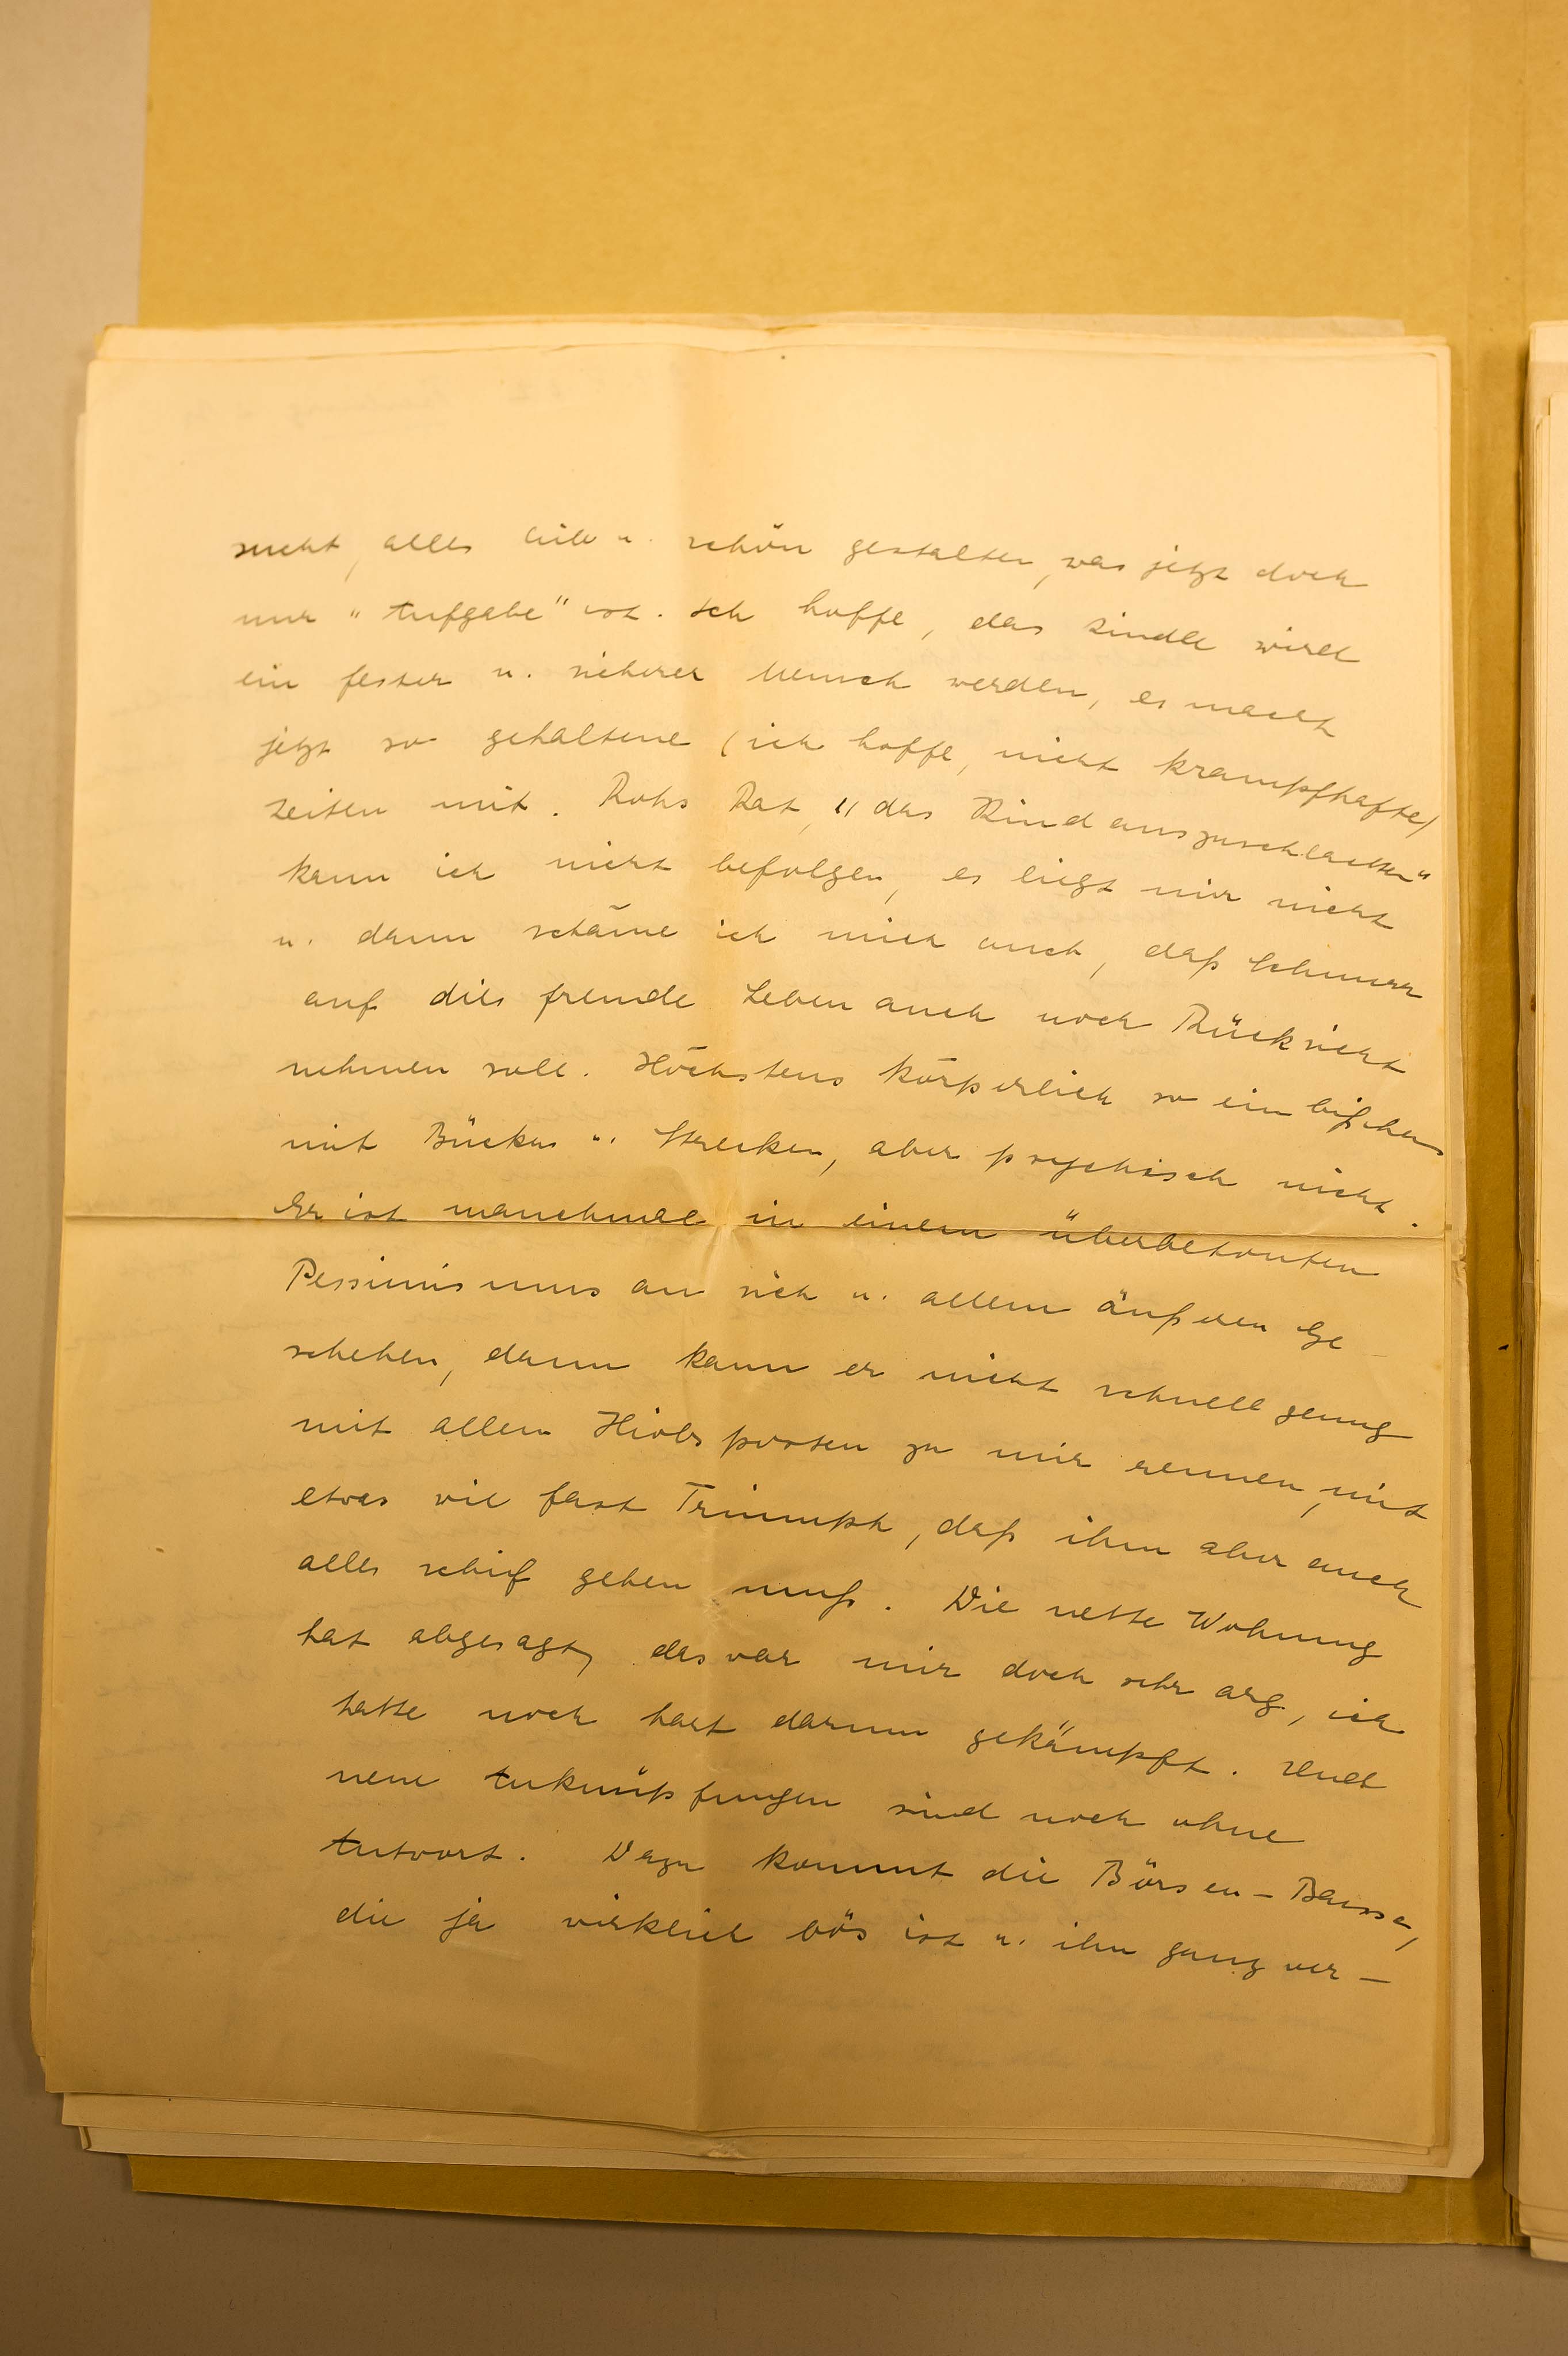 sucht, alles lieb u. schön gestalten, was jetzt doch
nur "Aufgabe" ist. Ich hoffe, das Kindle wird
ein fester u. sicherer Mensch werden, es macht
jetzt so gehaltene (ich hoffe, nicht krampfhafte)
Zeiten mit. Rohs Rat, "das Kind auszuschlachten"
kann ich nicht befolgen, es liegt mir nicht
u. dann schäme ich mich auch, daß Schnurr
auf dies fremde Leben auch noch Rücksicht
nehmen soll. Höchstens körperlich so ein bißchen
mit Bücken u. Strecken, aber psychisch nicht.
Er ist manchmal in einem überbetonten
Pessimismus an sich u. allem äußeren Ge-
schehen, dann kann er nicht schnell genug
mit allen Hiobsposten zu mir rennen, mit
etwas wie fast Triumph, daß ihm aber auch
alles schief gehen muß. Die nette Wohnung
hat abgesagt, das war mir doch sehr arg, ich
hatte noch hart darum gekämpft. Und
neue Anknüpfungen sind noch ohne
Antwort. Dazu kommt die Börsen-Baisse,
die ja wirklich bös ist u. ihn ganz ver-